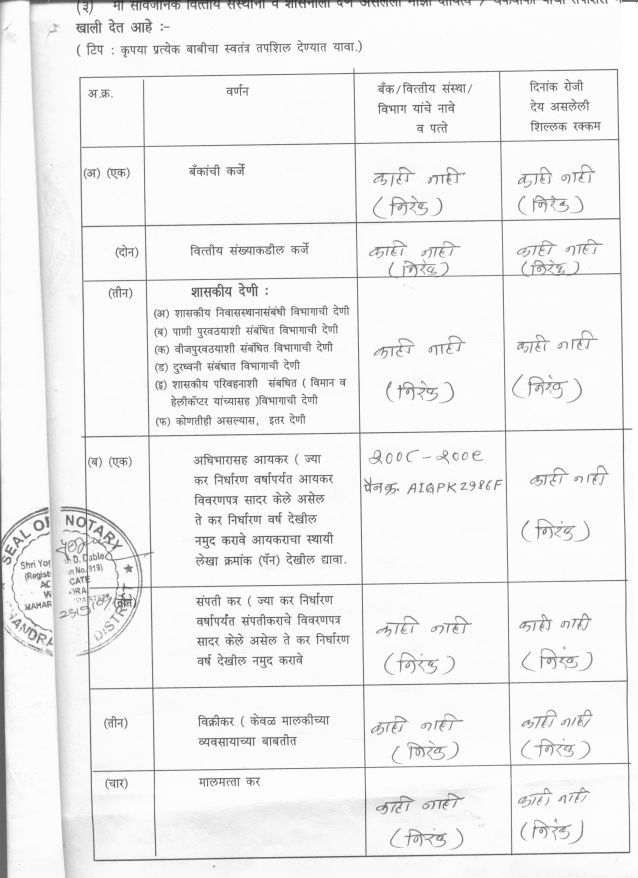 (३) मी सार्वजनिक वित्तीय संस्थांना व शासनाला देणे असलेली माझी दायित्वे /
खाली देत आहे :-
( टिप : कृपया प्रत्येक बाबीचा स्वतंत्र तपशिल देण्यात यावा.)
अ.क्र. वर्णन बँक/वित्तीय संस्था/ दिनांक रोजी
विभाग यांचे नावे देय असलेली
व पत्ते शिल्लक रक्कम
(अ) (एक) बँकांची कर्जे काही नाही काही नाही
(निरंक) (निरंक)
(दोन) वित्तीय संख्याकडील कर्जे काही नाही काही नाही
(निरंक) (निरंक)
(तीन) शासकीय देणी :
(अ) शासकीय निवासस्थानासंबंधी विभागाची देणी
(ब) पाणी पुरवठयाशी संबंधित विभागाची देणी
(क) वीजपुरवठयाशी संबंधित विभागाची देणी काही नाही काही नाही
(ड) दुरध्वनी संबंधात विभागाची देणी
(इ) शासकीय परिवहनाशी संबधित ( विमान व (निरंक) (निरंक)
हेलीकॅप्टर यांच्यासह )विभागाची देणी
(फ) कोणतीही असल्यास, इतर देणी
(ब) (एक) अधिभारासह आयकर ( ज्या २००८-२००९
कर निर्धारण वर्षापर्यंत आयकर पॅनक्र. AIQPK2986F काही नाही
विवरणपत्र सादर केले असेल
ते कर निर्धारण वर्ष देखील (निरंक)
नमुद करावे आयकराचा स्थायी
लेखा क्रमांक (पॅन) देखील द्यावा.
SEAL OF NOTARY
Shri Yo D. Dable
(Regist n No. 919)
AD CATE
MAHAR
DISTRICT
संपती कर ( ज्या कर निर्धारण
वर्षापर्यंत संपतीकराचे विवरणपत्र काही नाही काही नाही
सादर केले असेल ते कर निर्धारण
वर्ष देखील नमुद करावे (निरंक) (निरंक)
(तीन) विक्रीकर ( केवळ मालकीच्या काही नाही काही नाही
व्यवसायाच्या बाबतीत (निरंक) (निरंक)
(चार) मालमत्ता कर काही नाही काही नाही
(निरंक) (निरंक)